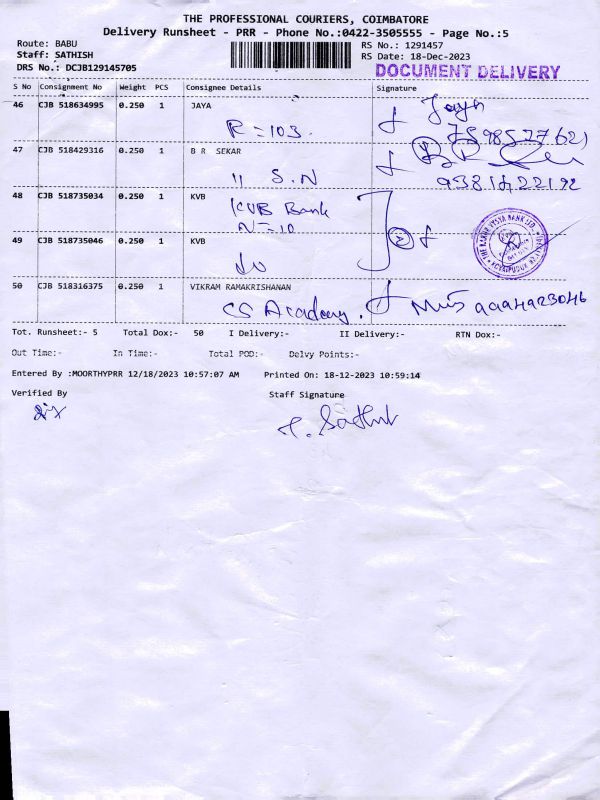 THE PROFESSIONAL COURIERS, COIMBATORE
Delivery Runsheet - PRR - Phone No.:0422-3505555 - Page No.:5
Route: BABU RS No.: 1291457
Staff: SATHISH RS Date: 18-Dec-2023
DRS No.: DCJB129145705 DOCUMENT DELIVERY
S No Consignment No Weight PCS Consignee Details Signature
46 CJB 518634995 0.250 1 JAYA Jaya
R = 103.
47 CJB 518429316 0.250 1 B R SEKAR
11 S.N
48 CJB 518735034 0.250 1 KVB
KVB Bank
N = 10
49 CJB 518735046 0.250 1 KVB
50 CJB 518316375 0.250 1 VIKRAM RAMAKRISHANAN
CS Academy.
Tot. Runsheet:- 5 Total Dox:- 50 I Delivery:- II Delivery:- RTN Dox:-
Out Time:- In Time:- Total POD:- Delvy Points:-
Entered By :MOORTHYPRR 12/18/2023 10:57:07 AM Printed On: 18-12-2023 10:59:14
Verified By Staff Signature